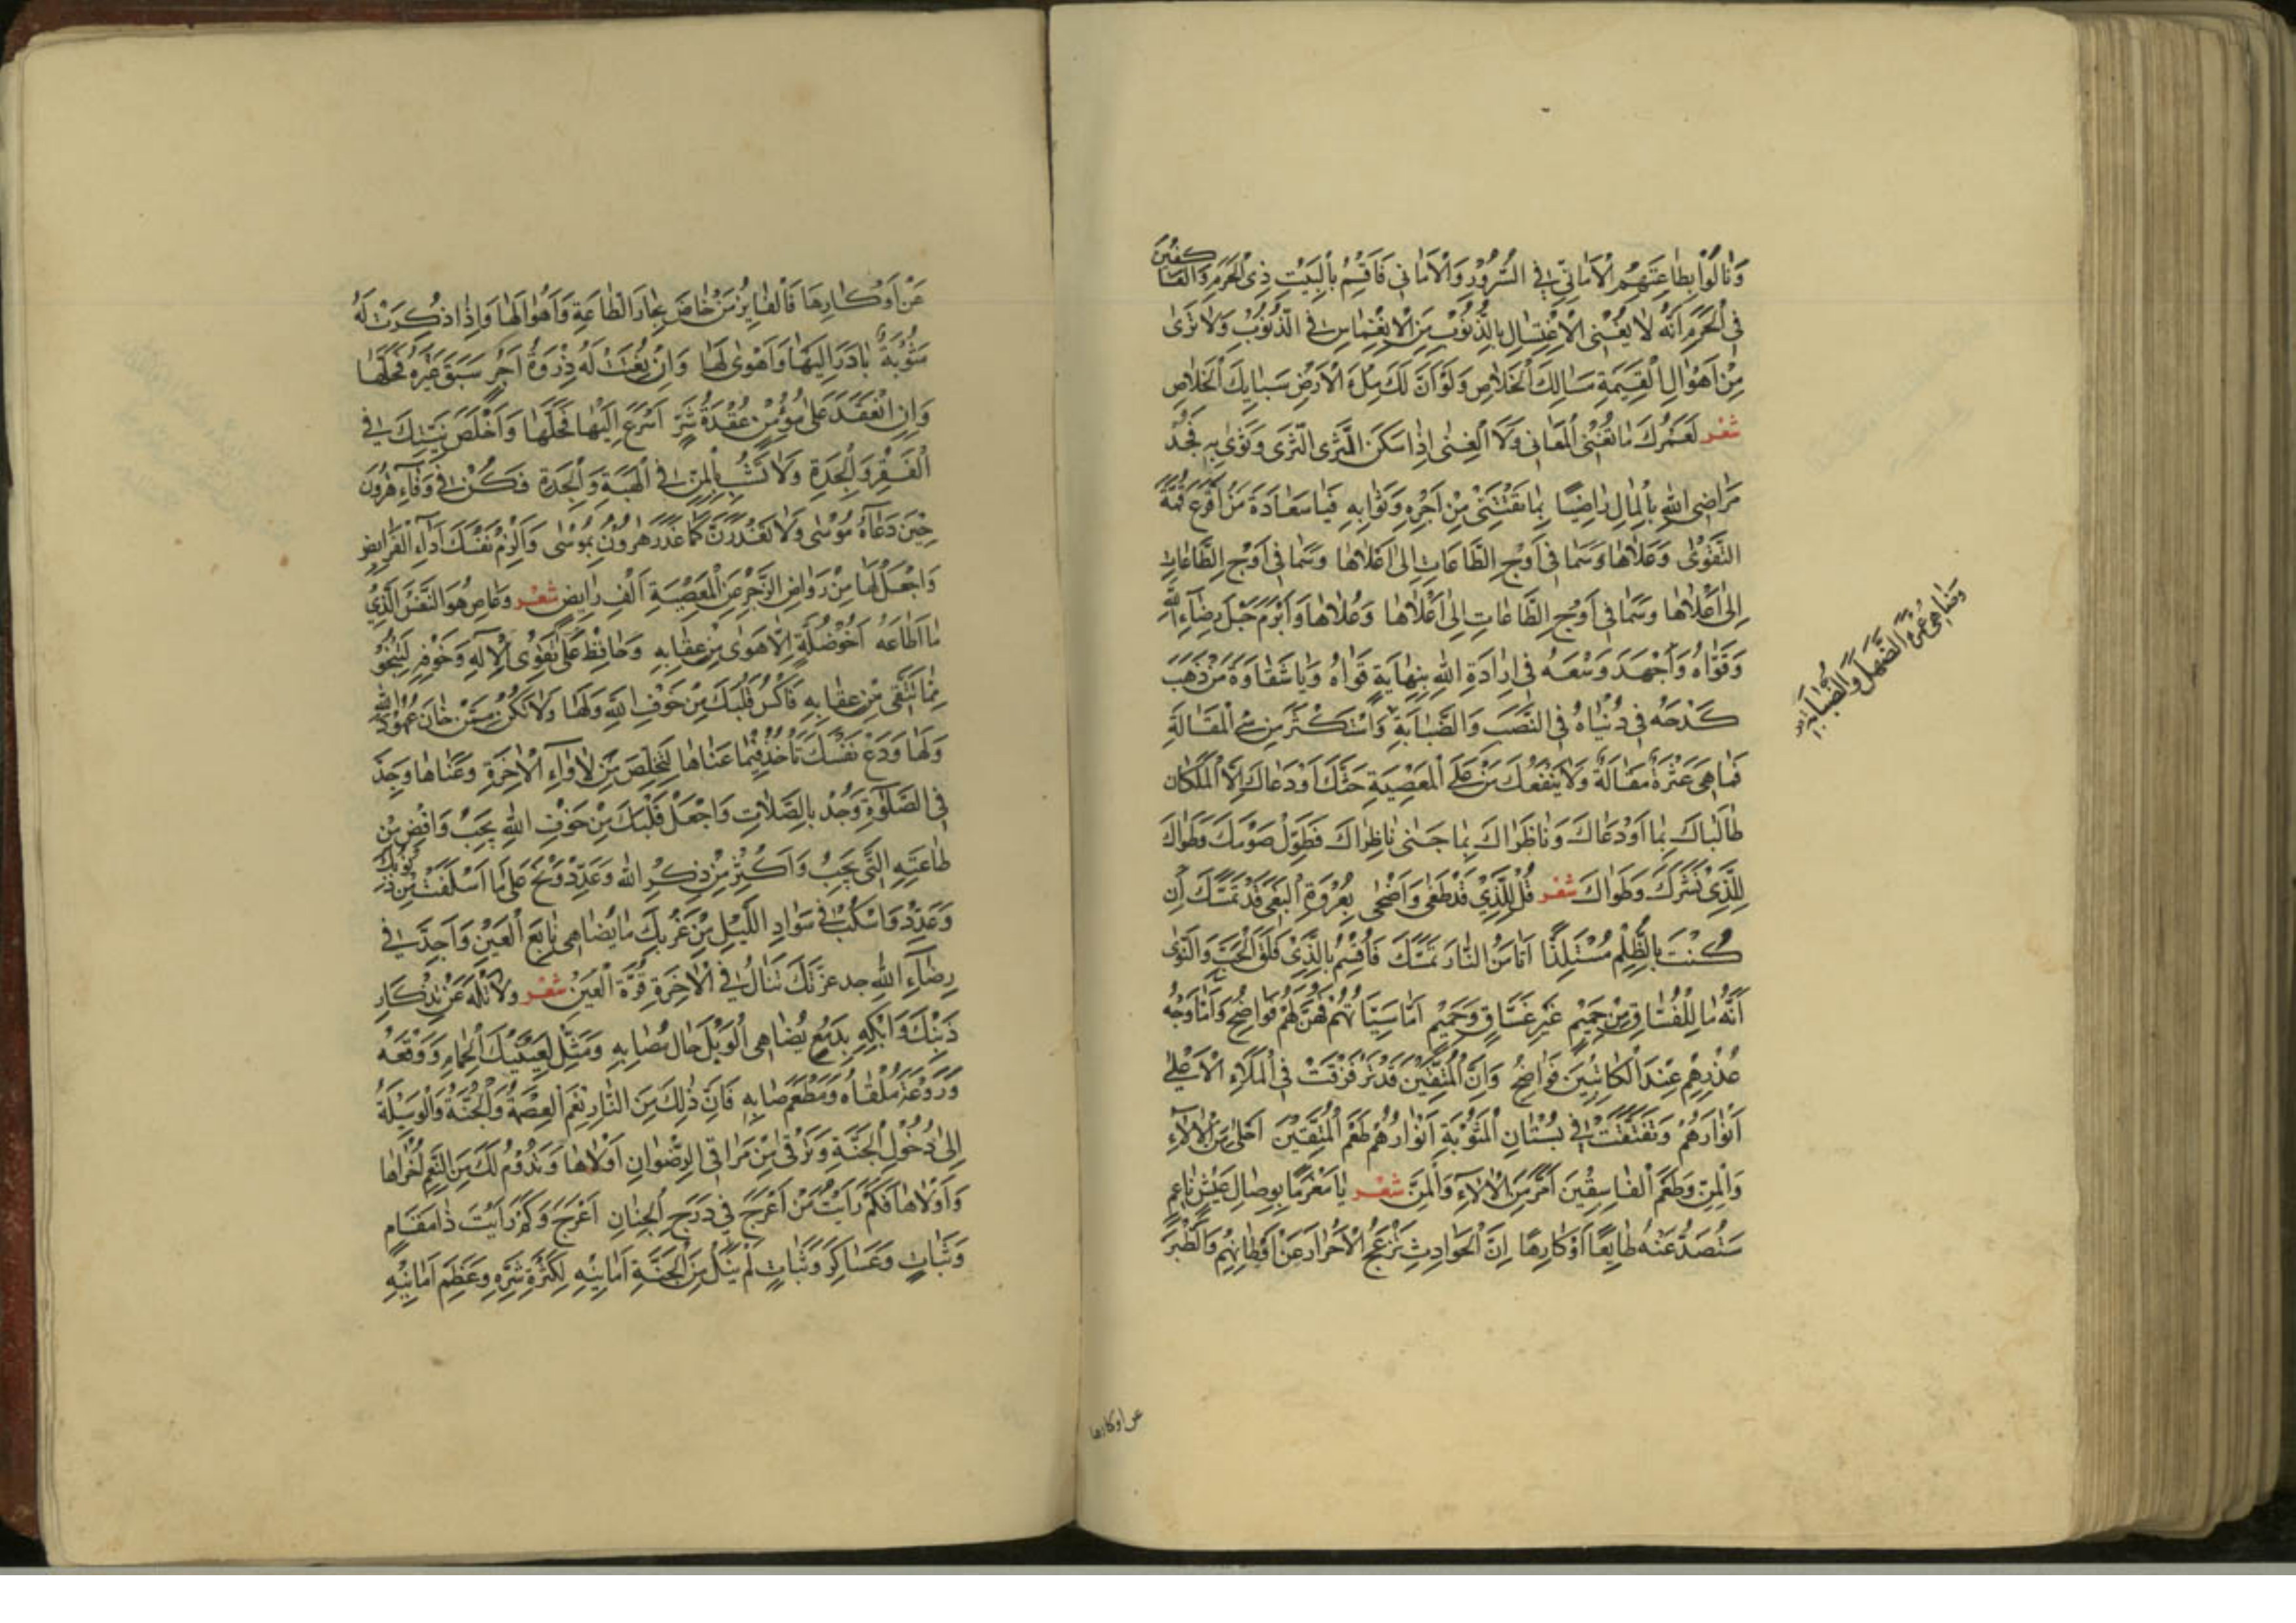 وَنَالُوا بِطَاعَتِهِمُ الْاَمَانِيَّ فِي السُّرُورِ وَالْاَمَانِي فَاُقْسِمُ بِالْبَيْتِ ذِي الْحَرَمِ وَالْعَاكِفِينَ
فِي الْحَرَمِ اَنَّهُ لَا يُغْنِي الْاِغْتِسَالُ بِالذَّنُوبِ مِنَ الْاِنْغِمَاسِ فِي الذُّنُوبِ وَلَا تَرٰى
مِنْ اَهْوَالِ الْقِيٰمَةِ مَسَالِكَ الْخَلَاصِ وَلَوْ اَنَّ لَكَ مِلْءَ الْاَرْضِ سَبَايِكَ الْخِلَاصِ
شعر لَعَمْرُكَ مَا تُغْنِي الْمَغَانِي وَلَا الْغِنٰى اِذَا سَكَنَ الْمُثْرِي الثَّرٰى وَثَوٰى بِهِ فَجُدْ
مَرَاضِي اللّٰهِ بِالْمَالِ رَاضِيًا بِمَا تَقْتَنِي مِنْ اَجْرِهِ وَثَوَابِهِ فَيَا سَعَادَةَ مَنْ اَفْرَعَ قِمَّةَ
التَّقْوٰى وَعَلَاهَا وَسَمَا فِي اَوْجِ الطَّاعَاتِ اِلٰى اَعْلَاهَا وَسَمَا فِي اَوْجِ الطَّاعَاتِ
اِلٰى اَعْلَاهَا وَسَمَا فِي اَوْجِ الطَّاعَاتِ اِلٰى اَعْلَاهَا وَعُلَاهَا وَاَبْرَمَ حَبْلَ رِضَاءِ اللّٰهِ
وَقَوَّاهُ وَاَجْهَدَ وُسْعَهُ فِي اِرَادَةِ اللّٰهِ بِنِهَايَةِ قُوَاهُ وَيَا شَقَاوَةَ مَنْ ذَهَبَ
كَدْحُهُ فِي دُنْيَاهُ فِي النَّصَبِ وَالضَّبَابَةِ وَاسْتَكْثَرَ مِنْ عَيِّ الْمَقَالَةِ
فَمَا هِيَ عَثْرَةٌ مُقَالَةٌ وَلَا يَنْفَعُكَ مَنْ عَلَى الْمَعْصِيَةِ حَثَّكَ وَدَعَاكَ اِذَا الْمَلَكَانِ
طَالَبَاكَ بِمَا اَوْدَعَاكَ وَنَاظَرَاكَ بِمَا جَنٰى نَاظِرَاكَ فَطَوِّلْ صَوْمَكَ وَطَوَاكَ
لِلَّذِي نَشَرَكَ وَطَوَاكَ شعر قُلْ لِلَّذِي قَدْ طَغٰى وَاَضْحٰى بِعُرْوَةِ الْبَغْيِ قَدْ تَمَسَّكَ اِنْ
كُنْتَ بِالظُّلْمِ مُسْتَلِذًّا اَنَا مَنْ النَّارَ تَمَسَّكَ فَاُقْسِمُ بِالَّذِي فَلَقَ الْحَبَّ وَالنَّوٰى
اَنَّهُ مَا لِلْفُسَّاقِ مِنْ حَمِيمٍ غَيْرُ غَسَّاقٍ وَحَمِيمٍ اَمَّا سَيِّئَاتُهُمْ فَهُنَّ لَهُمْ فَوَاضِحُ وَاَمَّا وَجْهُ
عُذْرِهِمْ عِنْدَ الْكَاتِبِينَ فَوَاضِحٌ وَاِنَّ الْمُتَّقِينَ قَدْ تَرَقْرَقَتْ فِي الْمَلَاءِ الْاَعْلٰى
اَنْوَارُهُمْ وَتَفَتَّقَتْ فِي بُسْتَانِ الْمَثُوبَةِ اَنْوَارُهُمْ طَعْمُ الْمُتَّقِينَ اَحْلٰى مِنَ الْاٰلَاءِ
وَالْمَنِّ وَطَعْمُ الْفَاسِقِينَ اَمَرُّ مِنَ الْاَلَاءِ وَالْمَنِّ شعر يَا مُغْرَمًا بِوِصَالِ عَيْشٍ نَاعِمٍ
سَتُصَدُّ عَنْهُ طَايِعًا اَوْ كَارِهًا اِنَّ الْحَوَادِثَ تُزْعِجُ الْاَحْرَارَ عَنْ اَوْطَانِهِمْ وَالطَّيْرَ
وضاهى عمره الضهل والضبابة
عن اوكارها
عَنْ اَوْكَارِهَا فَالْفَايِزُ مَنْ خَاضَ بِحَارَ الطَّاعَةِ وَاَهْوَالَهَا وَاِذَا ذُكِرَتْ لَهُ
مَثُوبَةٌ بَادَرَ اِلَيْهَا وَاَهْوٰى لَهَا وَاِنْ رُفِعَتْ لَهُ ذِرْوَةُ اَجْرٍ سَبَقَ غَيْرَهُ فَحَلَّهَا
وَاِنِ انْعَقَدَ عَلٰى مُؤْمِنٍ عُقْدَةُ شَرٍّ اَسْرَعَ اِلَيْهَا فَحَلَّهَا وَاَخْلِصْ نِيَّتَكَ فِي
الْفَقْرِ وَالْجِدَةِ وَلَا تَشُبْ بِالْمَنِّ فِي الْهِبَةِ وَالْجِدَةِ فَكُنْ فِي وَفَاءِ هٰرُونَ
حِينَ دَعَاهُ مُوسٰى وَلَا تَغْدُرَنَّ كَمَا غَدَرَ هٰرُونُ بِمُوسٰى وَاَلْزِمْ نَفْسَكَ اَدَاءَ الْفَرَايِضِ
وَاجْعَلْ لَهَا مِنْ رُوَّاضِ الزَّجْرِ عَنِ الْمَعْصِيَةِ اَلْفَ رَايِضٍ شعر وَعَاصِ هَوَا النَّفْسِ الَّذِي
مَا اَطَاعَهُ اَخُو ضُلَّةٍ اِلَّا هَوٰى مِنْ عِقَابِهِ وَحَافِظْ عَلٰى تَقْوَى الْاِلٰهِ وَخَوْفِهِ لِتَنْجُوَ
مِمَّا يُتَّقٰى مِنْ عِقَابِهِ فَاكْسُ قَلْبَكَ مِنْ خَوْفِ اللّٰهِ وَلَهًا وَلَا تَكُنْ مِمَّنْ خَانَ عُهُودَ اللّٰهِ
وَلَهَا وَدَعْ نَفْسَكَ تَأْخُذُ فِيمَا عَنَاهَا لِتَخْلُصَ مِنْ لَأْوَاءِ الْاٰخِرَةِ وَعَنَاهَا وَجِدَّ
فِي الصَّلٰوةِ وَجُدْ بِالصِّلَاتِ وَاجْعَلْ قَلْبَكَ مِنْ خَوْفِ اللّٰهِ يَجِبُ وَاقْضِ مِنْ
طَاعَتِهِ الَّتِي يَجِبُ وَاَكْثِرْ مِنْ ذِكْرِ اللّٰهِ وَعَدِّدْ وَنُحْ عَلٰى مَا اَسْلَفْتَ مِنْ ذُنُوبِكَ
وَعَدِّدْ وَاسْكُبْ فِي سَوَادِ اللَّيْلِ مِنْ غَرْبِكَ مَا يُضَاهِي نَابِعَ الْعَيْنِ وَاَجِدَّ فِي
رِضَاءِ اللّٰهِ جد عَزْمَكَ تَنَالُ فِي الْاٰخِرَةِ قُرَّةَ الْعَيْنِ شعر وَلَا تَلْهُ عَنْ تَذْكَارِ
ذَنْبِكَ وَابْكِهِ بِدَمْعٍ يُضَاهِي الْوَبْلَ حَالَ مَصَابِهِ وَمَثِّلْ لِعَيْنَيْكَ الْحِمَامَ وَوَقْعَهُ
وَرَوْعَةَ مَلْقَاهُ وَمَطْعَمَ صَابِهِ فَاِنَّ ذٰلِكَ مِنَ النَّارِ نِعْمَ الْعِصْمَةُ وَالْجُنَّةُ وَالْوَسِيلَةُ
اِلٰى دُخُولِ الْجَنَّةِ وَتَرْقٰى مِنْ مَرَاقِي الرِّضْوَانِ اَوْلَاهَا وَتَدُومُ لَكَ مِنَ النِّعَمِ اُخْرَاهَا
وَاُوْلَاهَا فَكَمْ رَاَيْتُ مَنْ اَعْرَجَ فِي دَرَجِ الْجِنَانِ اَعْرَجَ وَكَمْ رَاَيْتَ ذَا مَقَامٍ
وَثَبَاتٍ وَعَسَاكِرَ وَثُبَاتٍ لَمْ يَنَلْ مِنَ الْجَنَّةِ اَمَانِيهِ لِكَثْرَةِ شَرِّهِ وَعِظَمِ اَمَانِيهِ